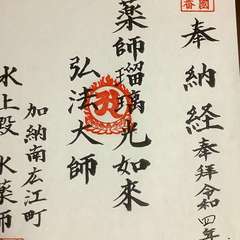 奉納経 奉拝令和四年
薬師瑠璃光如來
弘法大師
加納南広江町
水上殿 水薬師